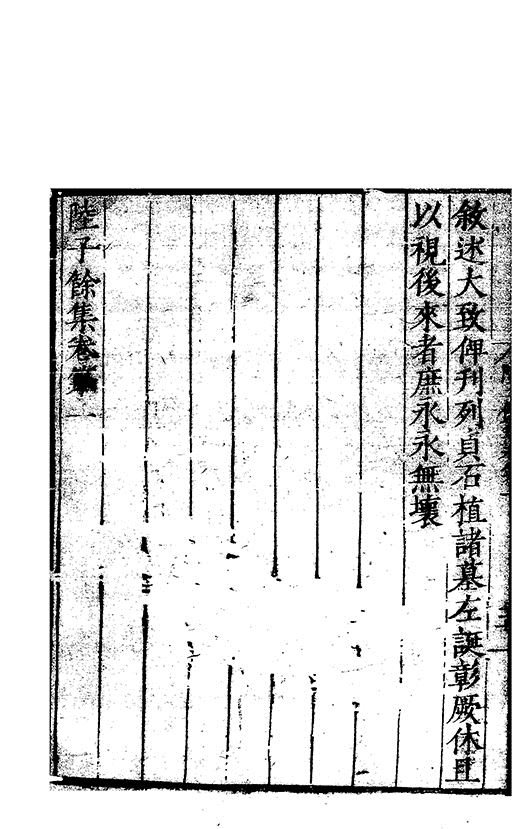 敘述大致俾刊列貞石植諸墓左誕彰厥休且
以視後來者庶永永無壞
陸子餘集卷第一